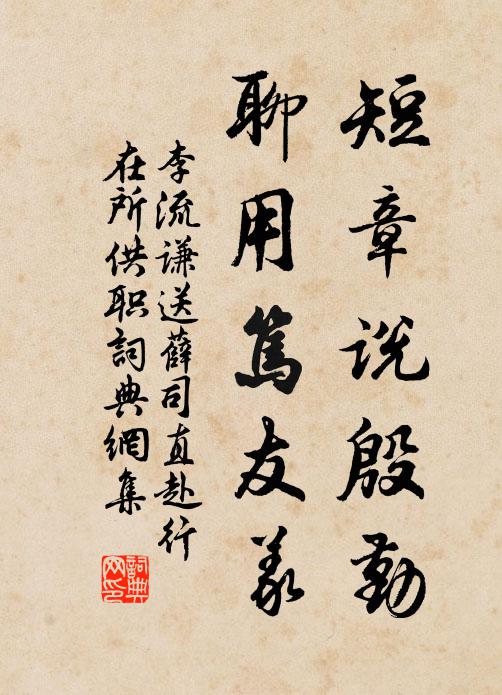 短章说殷勤
聊用篤友义
李流谦送薛司直赴行
在所供职詞典網集
詞典
网印